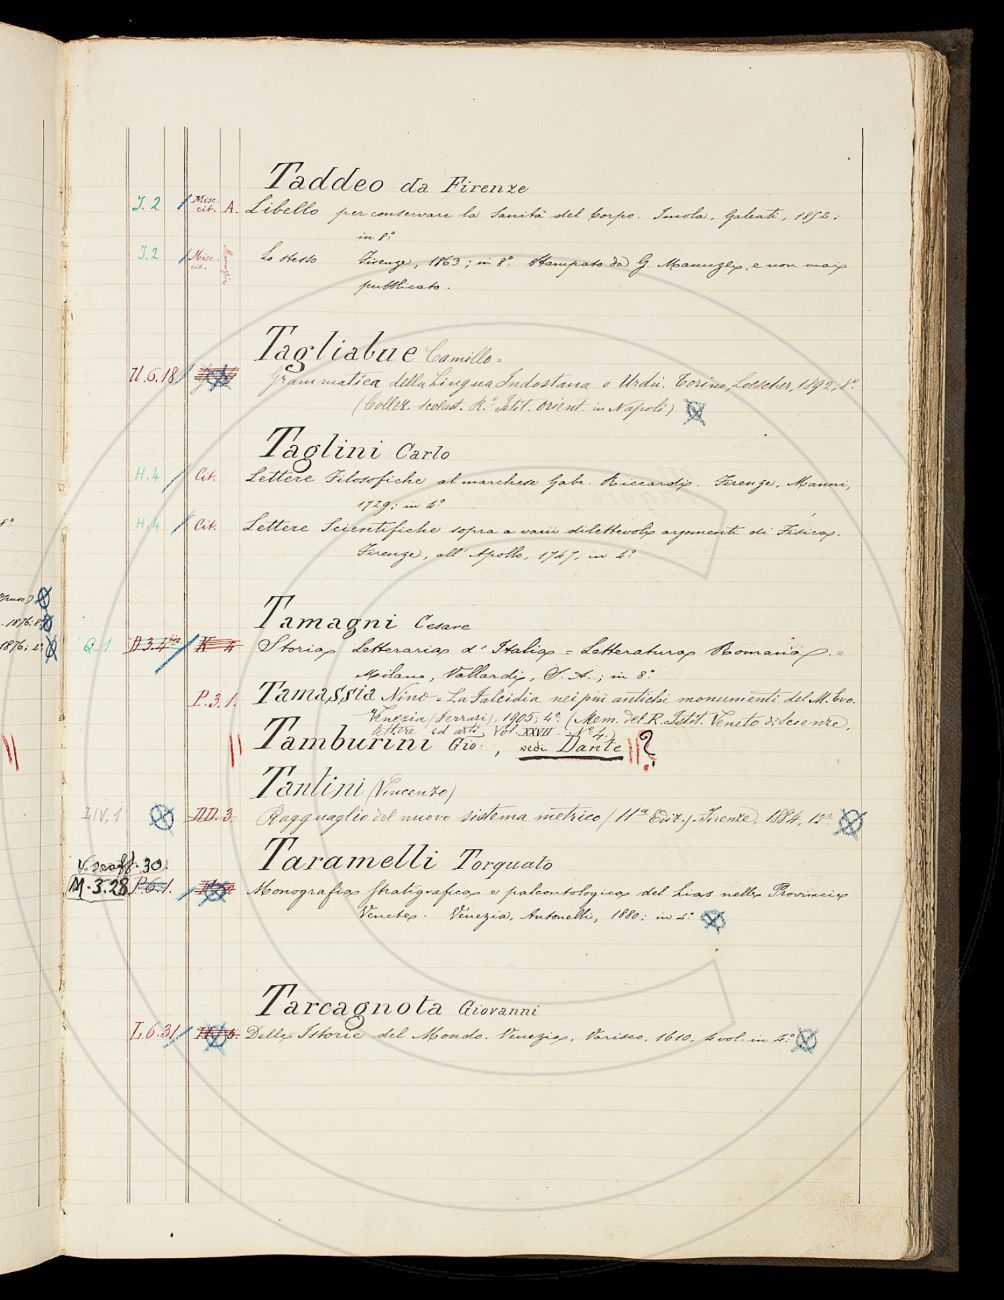 Taddeo da Firenze
J. 2 Misc. cit. A. Libello per conservare la Sanità del Corpo. Imola, Galeati, 1852;
in 8º
J. 2 Misc. cit. Lo stesso Firenze, 1863; in 8º. Stampato da G. Manuzzi, e non mai
pubblicato.
Tagliabue Camillo-
U.6.18 Grammatica della Lingua Indostana o Urdú. Torino, Loescher, 1892. 8º.
(Collez. scolast. R.º Istit. Orient. in Napoli)
Taglini Carlo
H.4 Cit. Lettere Filosofiche al marchese Gabr. Riccardi. Firenze, Manni,
1729; in 4º
H.4 Cit. Lettere Scientifiche sopra a varii dilettevoli argomenti di Fisica.
Firenze, all' Apollo, 1747; in 4º
Tamagni Cesare
Q. 1 D.3.4 bis K 4 Storia Letteraria d' Italia = Letteratura Romana. =
Milano, Vallardi, S. A.; in 8º
P.3.1. Tamassia Nino - La Falcidia nei più antichi monumenti del M. Evo.
Venezia (Ferrari), 1905; 4º. (Mem. del R. Istit. Veneto di Scienze,
lettere ed arti, Vol. XXVII - Nº 4.)
Tamburini Gio: , vedi Dante ?
Tantini (Vincenzo)
LIV, 1 DD. 3 Ragguaglio del nuovo sistema metrico (11ª Ediz.) - Firenze, 1884, 12º.
Taramelli Torquato
V. scaff. 30
M.3.28 P.6.1. Monografia stratigrafica e paleontologica del Lias nelle Provincie
Venete. Venezia, Antonelli, 1880; in 4º
Tarcagnota Giovanni
L.6.31 Delle Istorie del Mondo. Venezia, Varisco, 1610, 4 vol. in 4º
8º
1876, 8º
1876, 4º